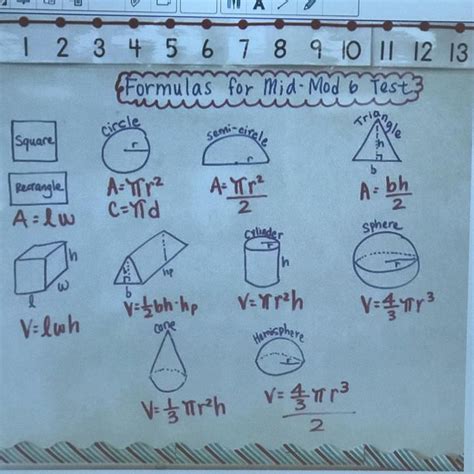 A
1 2 3 4 5 6 7 8 9 10 11 12 13
Formulas for Mid-Mod 6 Test
Square
Circle
r
A=πr²
C=πd
Semi-circle
r
A=πr²/2
Triangle
h
b
A=bh/2
Rectangle
A=lw
h
w
l
V=lwh
h
b
hp
V=½bh·hp
Cylinder
r
h
V=πr²h
Sphere
r
V=4/3πr³
Cone
V=1/3πr²h
Hemisphere
r
V=4/3πr³/2